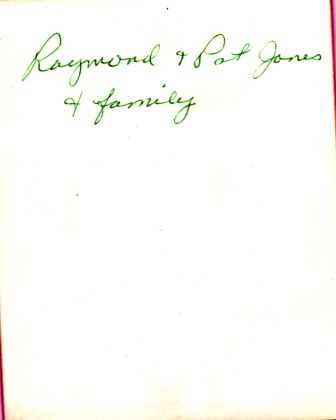 Raymond & Pat Jones
& family